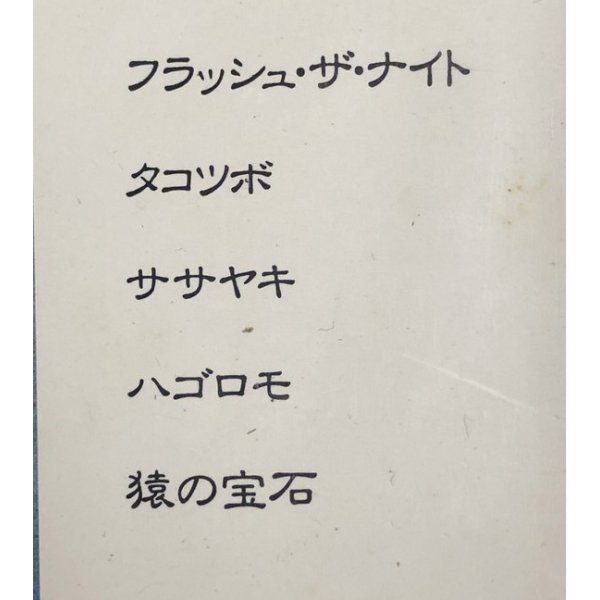 フラッシュ・ザ・ナイト
タコツボ
ササヤキ
ハゴロモ
猿の宝石